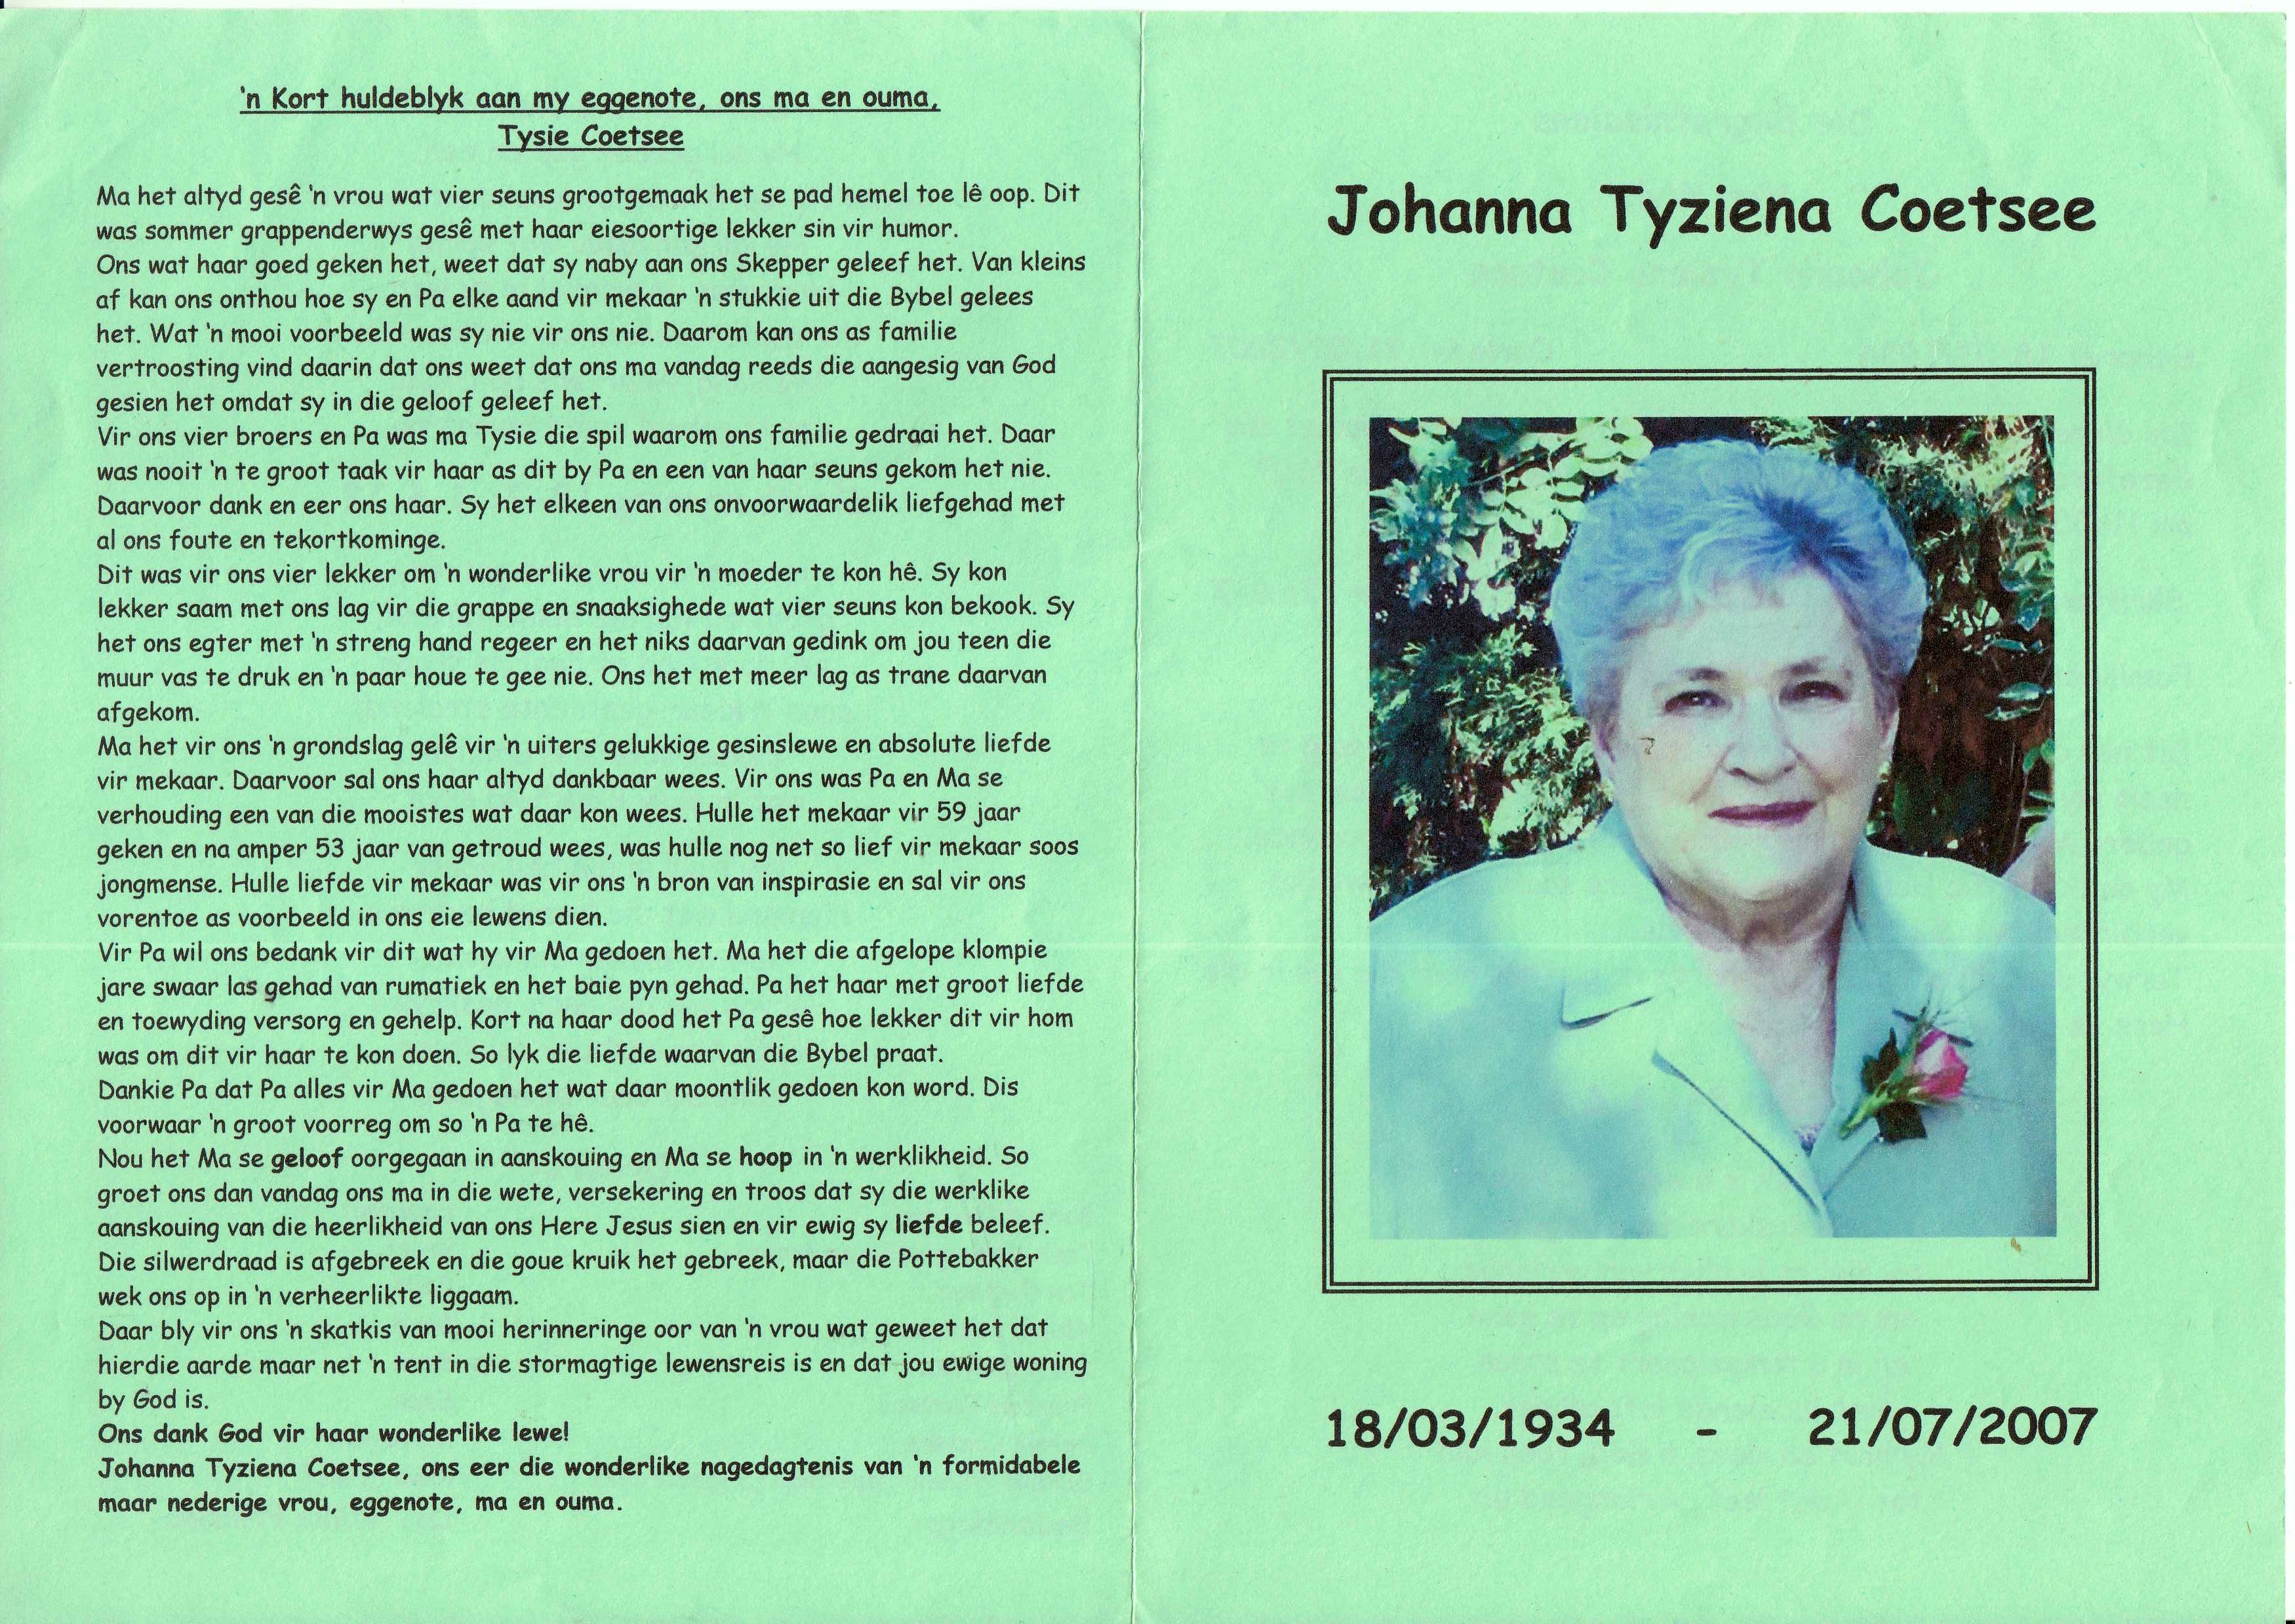 'n Kort huldeblyk aan my eggenote, ons ma en ouma,
Tysie Coetsee
Ma het altyd gesê 'n vrou wat vier seuns grootgemaak het se pad hemel toe lê oop. Dit
was sommer grappenderwys gesê met haar eiesoortige lekker sin vir humor.
Ons wat haar goed geken het, weet dat sy naby aan ons Skepper geleef het. Van kleins
af kan ons onthou hoe sy en Pa elke aand vir mekaar 'n stukkie uit die Bybel gelees
het. Wat 'n mooi voorbeeld was sy nie vir ons nie. Daarom kan ons as familie
vertroosting vind daarin dat ons weet dat ons ma vandag reeds die aangesig van God
gesien het omdat sy in die geloof geleef het.
Vir ons vier broers en Pa was ma Tysie die spil waarom ons familie gedraai het. Daar
was nooit 'n te groot taak vir haar as dit by Pa en een van haar seuns gekom het nie.
Daarvoor dank en eer ons haar. Sy het elkeen van ons onvoorwaardelik liefgehad met
al ons foute en tekortkominge.
Dit was vir ons vier lekker om 'n wonderlike vrou vir 'n moeder te kon hê. Sy kon
lekker saam met ons lag vir die grappe en snaaksighede wat vier seuns kon bekook. Sy
het ons egter met 'n streng hand regeer en het niks daarvan gedink om jou teen die
muur vas te druk en 'n paar houe te gee nie. Ons het met meer lag as trane daarvan
afgekom.
Ma het vir ons 'n grondslag gelê vir 'n uiters gelukkige gesinslewe en absolute liefde
vir mekaar. Daarvoor sal ons haar altyd dankbaar wees. Vir ons was Pa en Ma se
verhouding een van die mooistes wat daar kon wees. Hulle het mekaar vir 59 jaar
geken en na amper 53 jaar van getroud wees, was hulle nog net so lief vir mekaar soos
jongmense. Hulle liefde vir mekaar was vir ons 'n bron van inspirasie en sal vir ons
vorentoe as voorbeeld in ons eie lewens dien.
Vir Pa wil ons bedank vir dit wat hy vir Ma gedoen het. Ma het die afgelope klompie
jare swaar las gehad van rumatiek en het baie pyn gehad. Pa het haar met groot liefde
en toewyding versorg en gehelp. Kort na haar dood het Pa gesê hoe lekker dit vir hom
was om dit vir haar te kon doen. So lyk die liefde waarvan die Bybel praat.
Dankie Pa dat Pa alles vir Ma gedoen het wat daar moontlik gedoen kon word. Dis
voorwaar 'n groot voorreg om so 'n Pa te hê.
Nou het Ma se geloof oorgegaan in aanskouing en Ma se hoop in 'n werklikheid. So
groet ons dan vandag ons ma in die wete, versekering en troos dat sy die werklike
aanskouing van die heerlikheid van ons Here Jesus sien en vir ewig sy liefde beleef.
Die silwerdraad is afgebreek en die goue kruik het gebreek, maar die Pottebakker
wek ons op in 'n verheerlikte liggaam.
Daar bly vir ons 'n skatkis van mooi herinneringe oor van 'n vrou wat geweet het dat
hierdie aarde maar net 'n tent in die stormagtige lewensreis is en dat jou ewige woning
by God is.
Ons dank God vir haar wonderlike lewe!
Johanna Tyziena Coetsee, ons eer die wonderlike nagedagtenis van 'n formidabele
maar nederige vrou, eggenote, ma en ouma.
Johanna Tyziena Coetsee
18/03/1934 - 21/07/2007